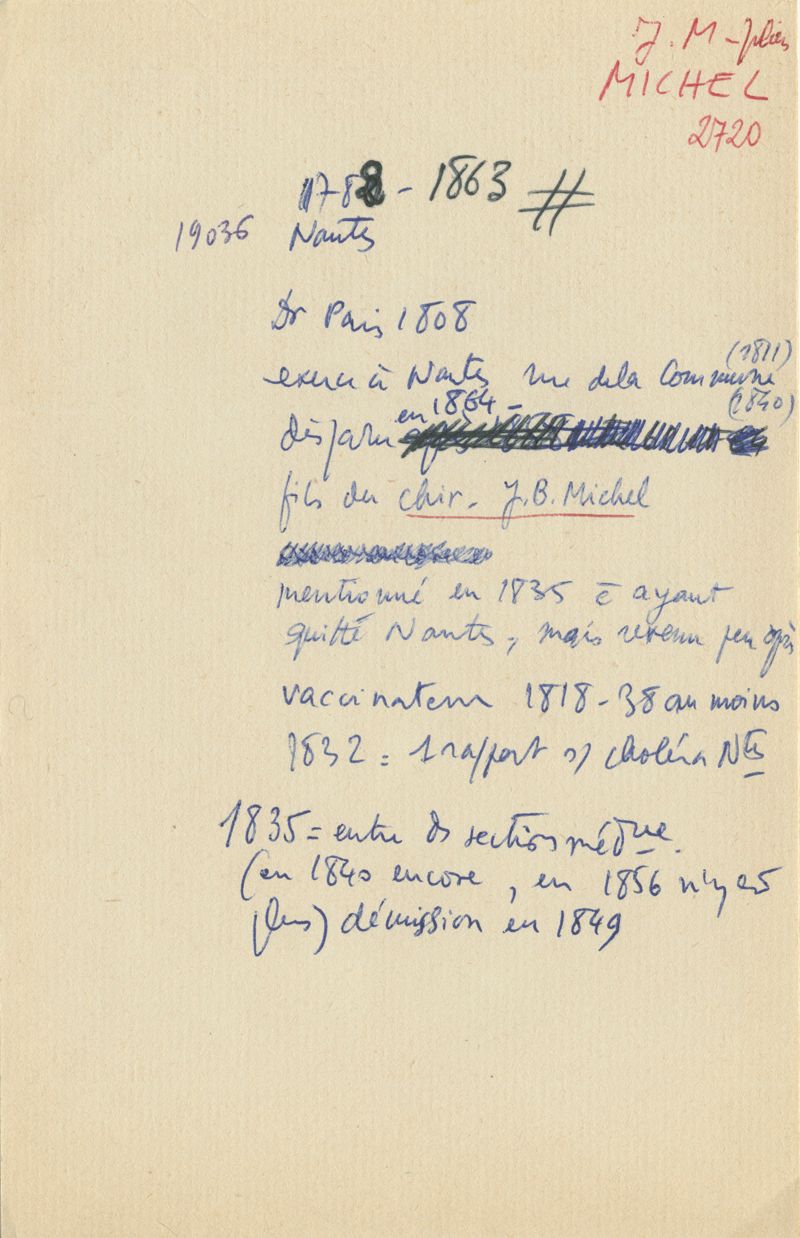 J. M-Julien
MICHEL
2720
1788 - 1863 #
19036 Nantes
Dr Paris 1808
exerce à Nantes rue de la Commune (1811) (1840)
disparu en 1864 -
fils du chir. J.B. Michel
mentionné en 1835 c̄ ayant
quitté Nantes, mais revenu peu après
vaccinateur 1818-38 au moins
1832 = 1 rapport s/ choléra Ntes
1835 = entre ds section médque.
(en 1840 encore, en 1856 n'y est
plus) démission en 1849